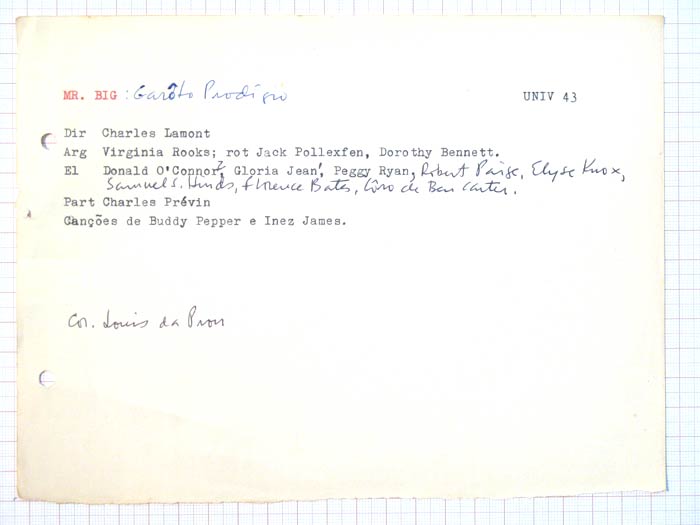 MR. BIG : Garôto Prodígio UNIV 43
Dir Charles Lamont
Arg Virginia Rooks; rot Jack Pollexfen, Dorothy Bennett.
El Donald O'Connor, Gloria Jean, Peggy Ryan, Robert Paige, Elyse Knox,
Samuel S. Hinds, Florence Bates, Côro de Ben Carter.
Part Charles Prévin
Canções de Buddy Pepper e Inez James.
Cor. Louis da Pron